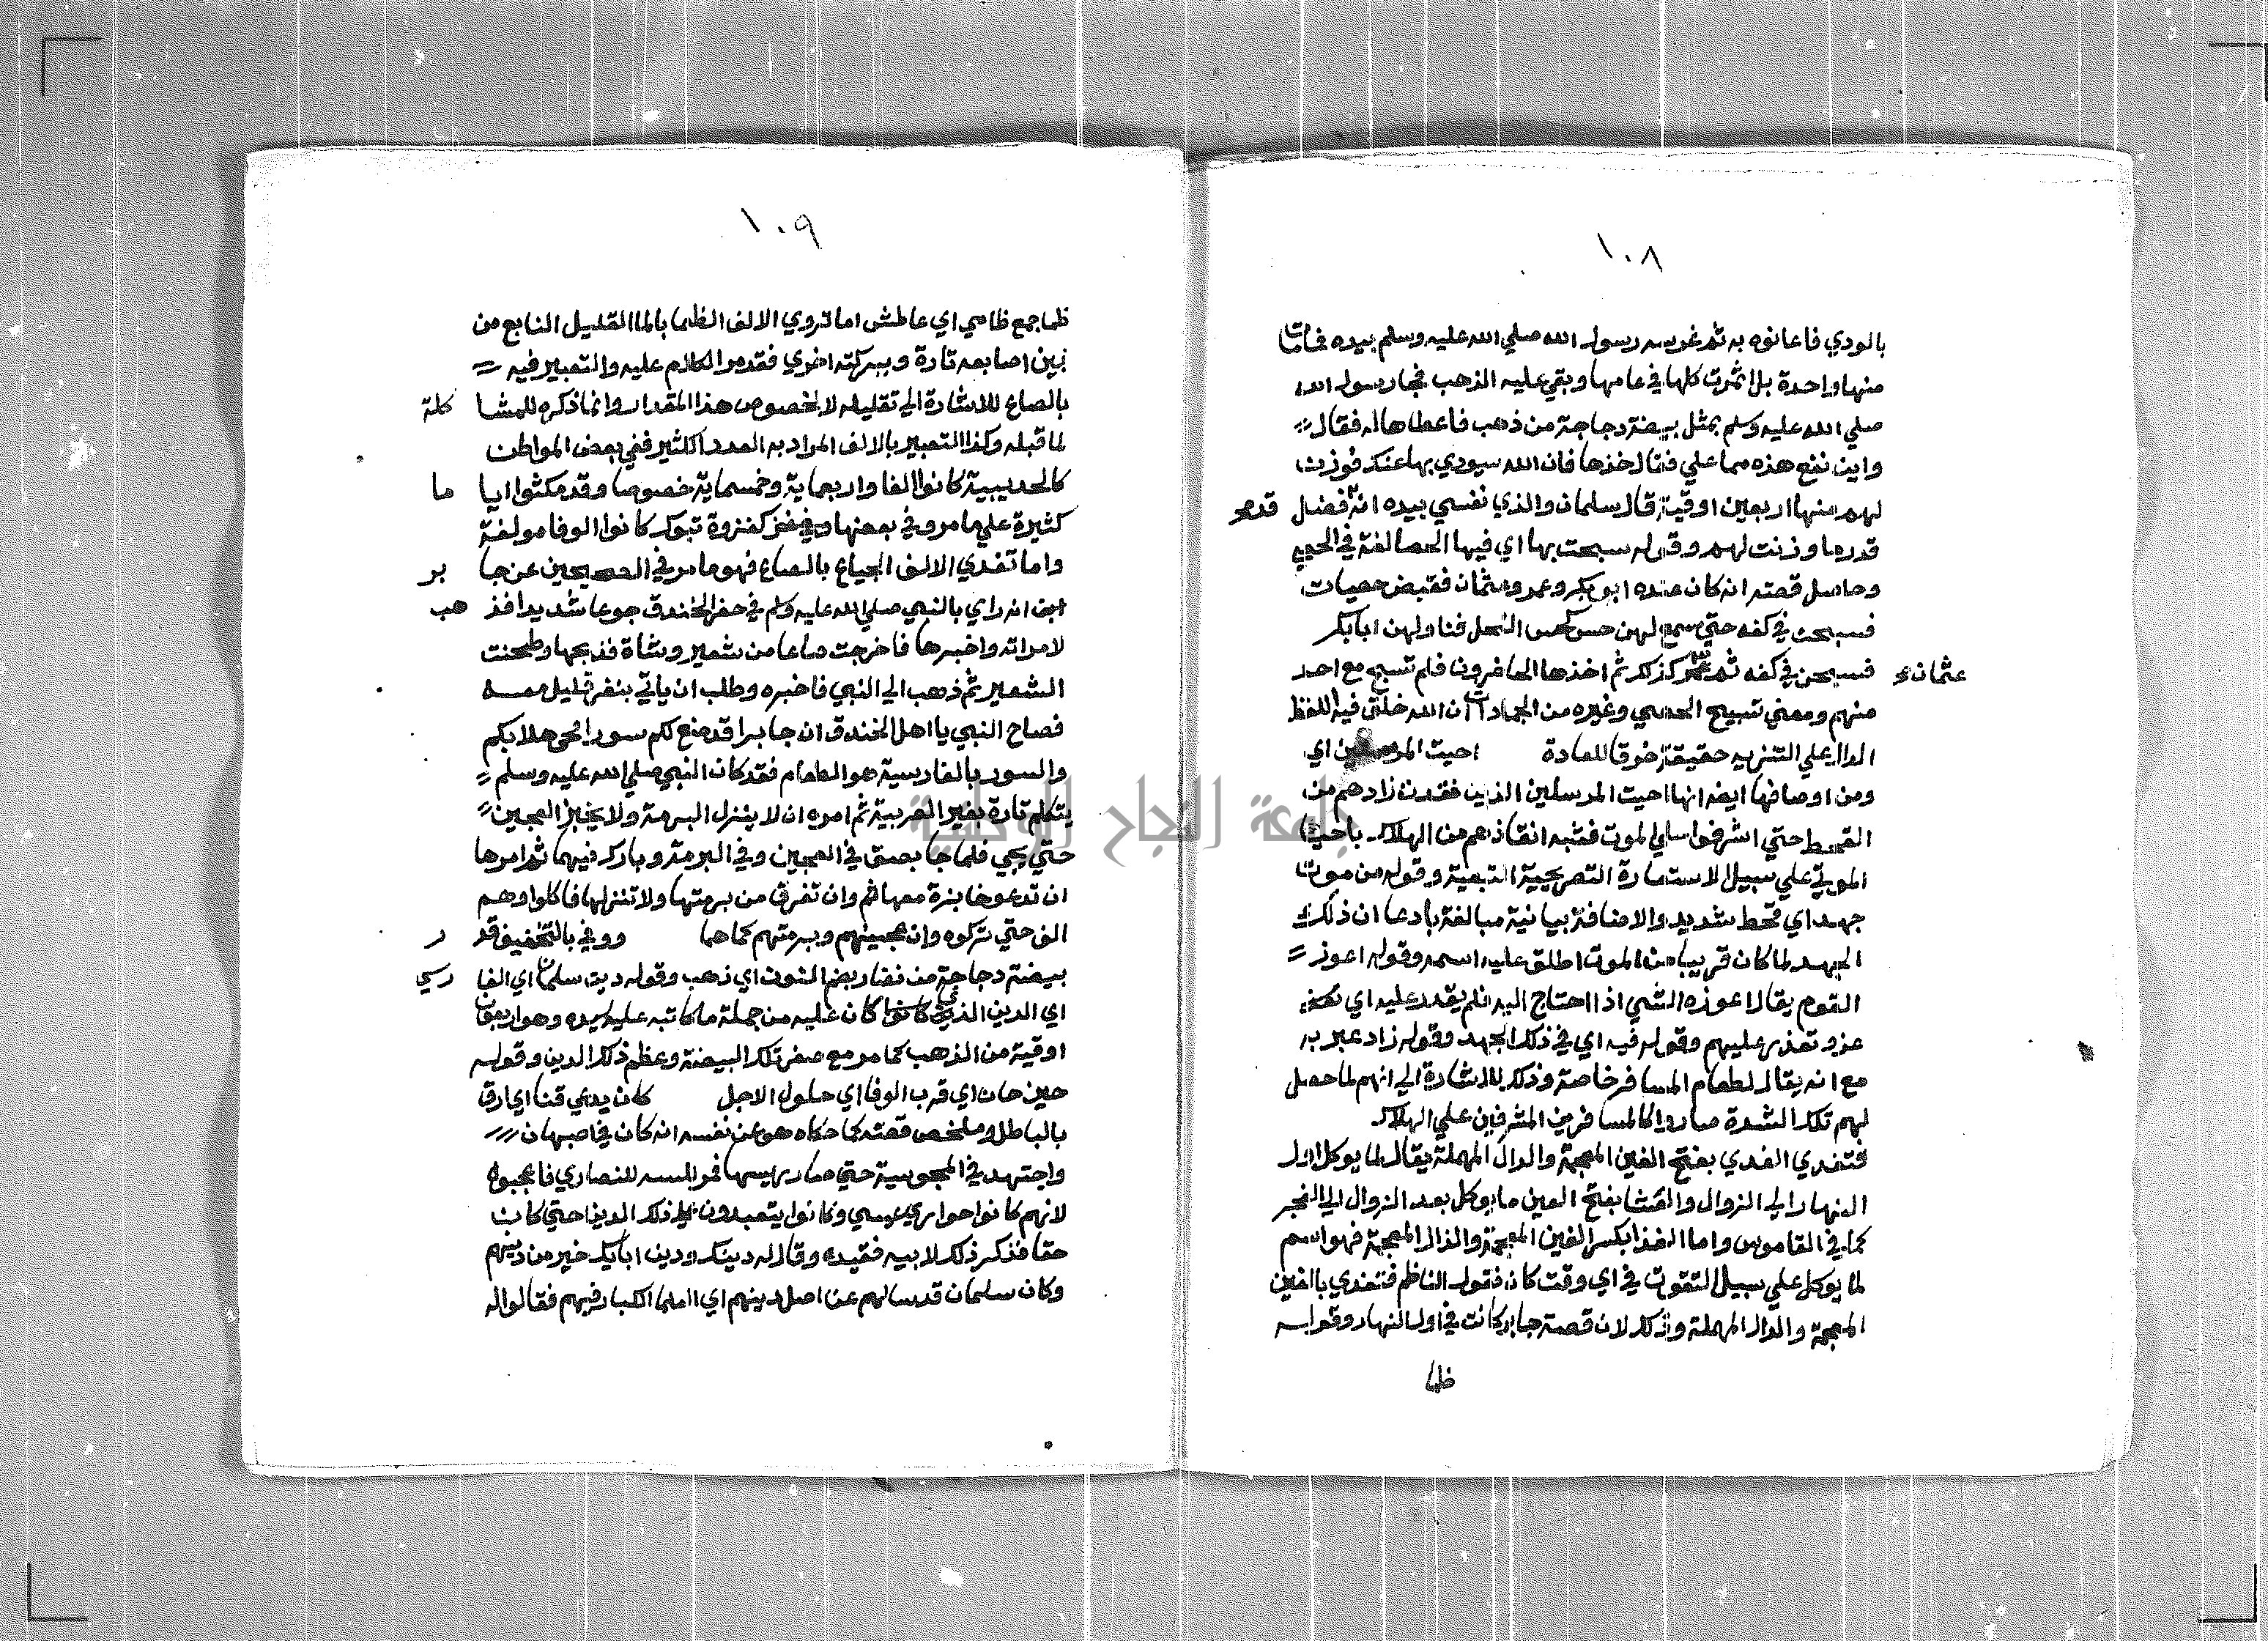 ١٠٨
بالودي فاعانوه به ثم غرسه رسول الله صلي الله عليه وسلم بيده فماتت
منها واحدة بل اثمرت كلها في عامها وبقي عليه الذهب فجا رسول الله
صلي الله عليه وسلم بمثل بيضة دجاجة من ذهب فاعطاها له فقال
واين تقع هذه مما علي فقال خذها فان الله سيودي بها عنك فوزنت
لهم منها اربعين اوقية قال سلمان والذي نفسي بيده انه فضل قدر
قدر ما وزنت لهم وقوله سبحت بها اي فيها الحصا لغة في الحصي
وحاصل قصته انه كان عنده ابو بكر وعمر وعثمان فقبض حصيات
فسبحت في كفه حتي سمع لهن حس كحس النحل فناولهن ابا بكر
فسبحن في كفه ثم عمر كذلك ثم اخذها الحاضرون فلم تسبح مع احد عثمان
منهم ومعني تسبيح الحصي وغيره من الجمادات ان الله خلق فيه اللفظ
الدال علي التنزيه حقيقة خرقا للعادة احيت المرملين اي
ومن اوصافها ايضا انها احيت المرسلين الذين فقدت زادهم من
القحط حتي اشرفوا علي الموت فشبه انقاذهم من الهلاك باحيا
الموتي علي سبيل الاستعارة التصريحية التبعية وقوله من موت
جهد اي قحط شديد والاضافة بيانية مبالغة بادعا ان ذلك
الجهد لما كان قريبا من الموت اطلق عليه اسمه وقوله اعوز
القوم يقال اعوزه الشي اذا احتاج اليه فلم يقدر عليه اي
عز وتعذر عليهم وقوله فيه اي في ذلك الجهد وقوله زاد عبر به
مع انه يقال لطعام المسافر خاصة وذلك للاشارة الي انهم لما حصل
لهم تلك الشدة صاروا كالمسافرين المشرفين علي الهلاك
فتغدي الغدي بفتح الغين المعجمة والدال المهملة يقال لما يوكل اول
النهار الي الزوال والعشا بفتح العين ما يوكل بعد الزوال الي الفجر
كما في القاموس واما الغذا بكسر الغين المعجمة والذال المعجمة فهو اسم
لما يوكل علي سبيل التقوت في اي وقت كان فقول الناظم فتغدي بالغين
المعجمة والدال المهملة وذلك لان قصة جابر كانت في اول النهار وقوله
ظما
١٠٩
ظما جمع ظامي اي عاطش اما تروي الالف الظما بالما القليل النابع من
بين اصابعه تارة وببركته اخري فقد مر الكلام عليه والتعبير فيه
بالصاع للاشارة الي تقليله لا لخصوص هذا المقدار وانما ذكره للمشا كلة
لما قبله وكذا التعبير بالالف المراد به العدد الكثير ففي بعض المواطن
كالحديبية كانوا الفا واربعماية وخمسماية خصوصا وقد مكثوا ايا ما
كثيرة علي ما مر وفي بعضها كغزوة تبوك كانوا الوفا مولفة
واما تغدي الالف الجياع بالصاع فهو ما مر في الصحيحين عن جا بر
ابن انه راي بالنبي صلي الله عليه وسلم في حفر الخندق جوعا شديدا فذ هب
لامراته واخبرها فاخرجت صاعا من شعير وشاة فذبحها وطحنت
الشعير ثم ذهب الي النبي فاخبره وطلب ان ياتي بنفر قليل معه
فصاح النبي يا اهل الخندق ان جابرا قد صنع لكم سورا فحي هلا بكم
والسور بالفارسية هو الطعام فقد كان النبي صلي الله عليه وسلم
يتكلم تارة بغير العربية ثم امره ان لا ينزل البرمة ولا يخبز العجين
حتي يجي فلما جا بصق في العجين وفي البرمة وبارك فيهما ثم امرها
ان تدعو خابزة معها ثم وان تغرف من برمتها ولا تنزلها فاكلوا وهم
الف حتي تركوه وان عجينهم وبرمتهم كما هما ووفي بالتخفيف قد ر
بيضة دجاجة من نضار بضم النون اي ذهب وقوله دين سلمان اي الفا رسي
اي الدين الذي كان عليه من جملة ما كاتبه عليه سيده وهو اربعون
اوقية من الذهب كما مر مع صغر تلك البيضة وعظم ذلك الدين وقوله
حين حان اي قرب الوفا اي حلول الاجل كان يدعي قنا اي رق
بالباطل وملخص قصته كما حكاه هو عن نفسه انه كان في اصبهان
واجتهد في المجوسية حتي صار رييسها فمر بكنيسة للنصاري فاعجبوه
لانهم كانوا حواري عيسي وكانوا يتعبدون علي ذلك الدين حتي كانت
حقا فذكر ذلك لابيه فقيده وقال له دينك ودين ابايك خير من دينهم
وكان سلمان قد سالهم عن اصل دينهم اي العلما الكبار فيهم فقالوا له
جامعة النجاح الوطنية